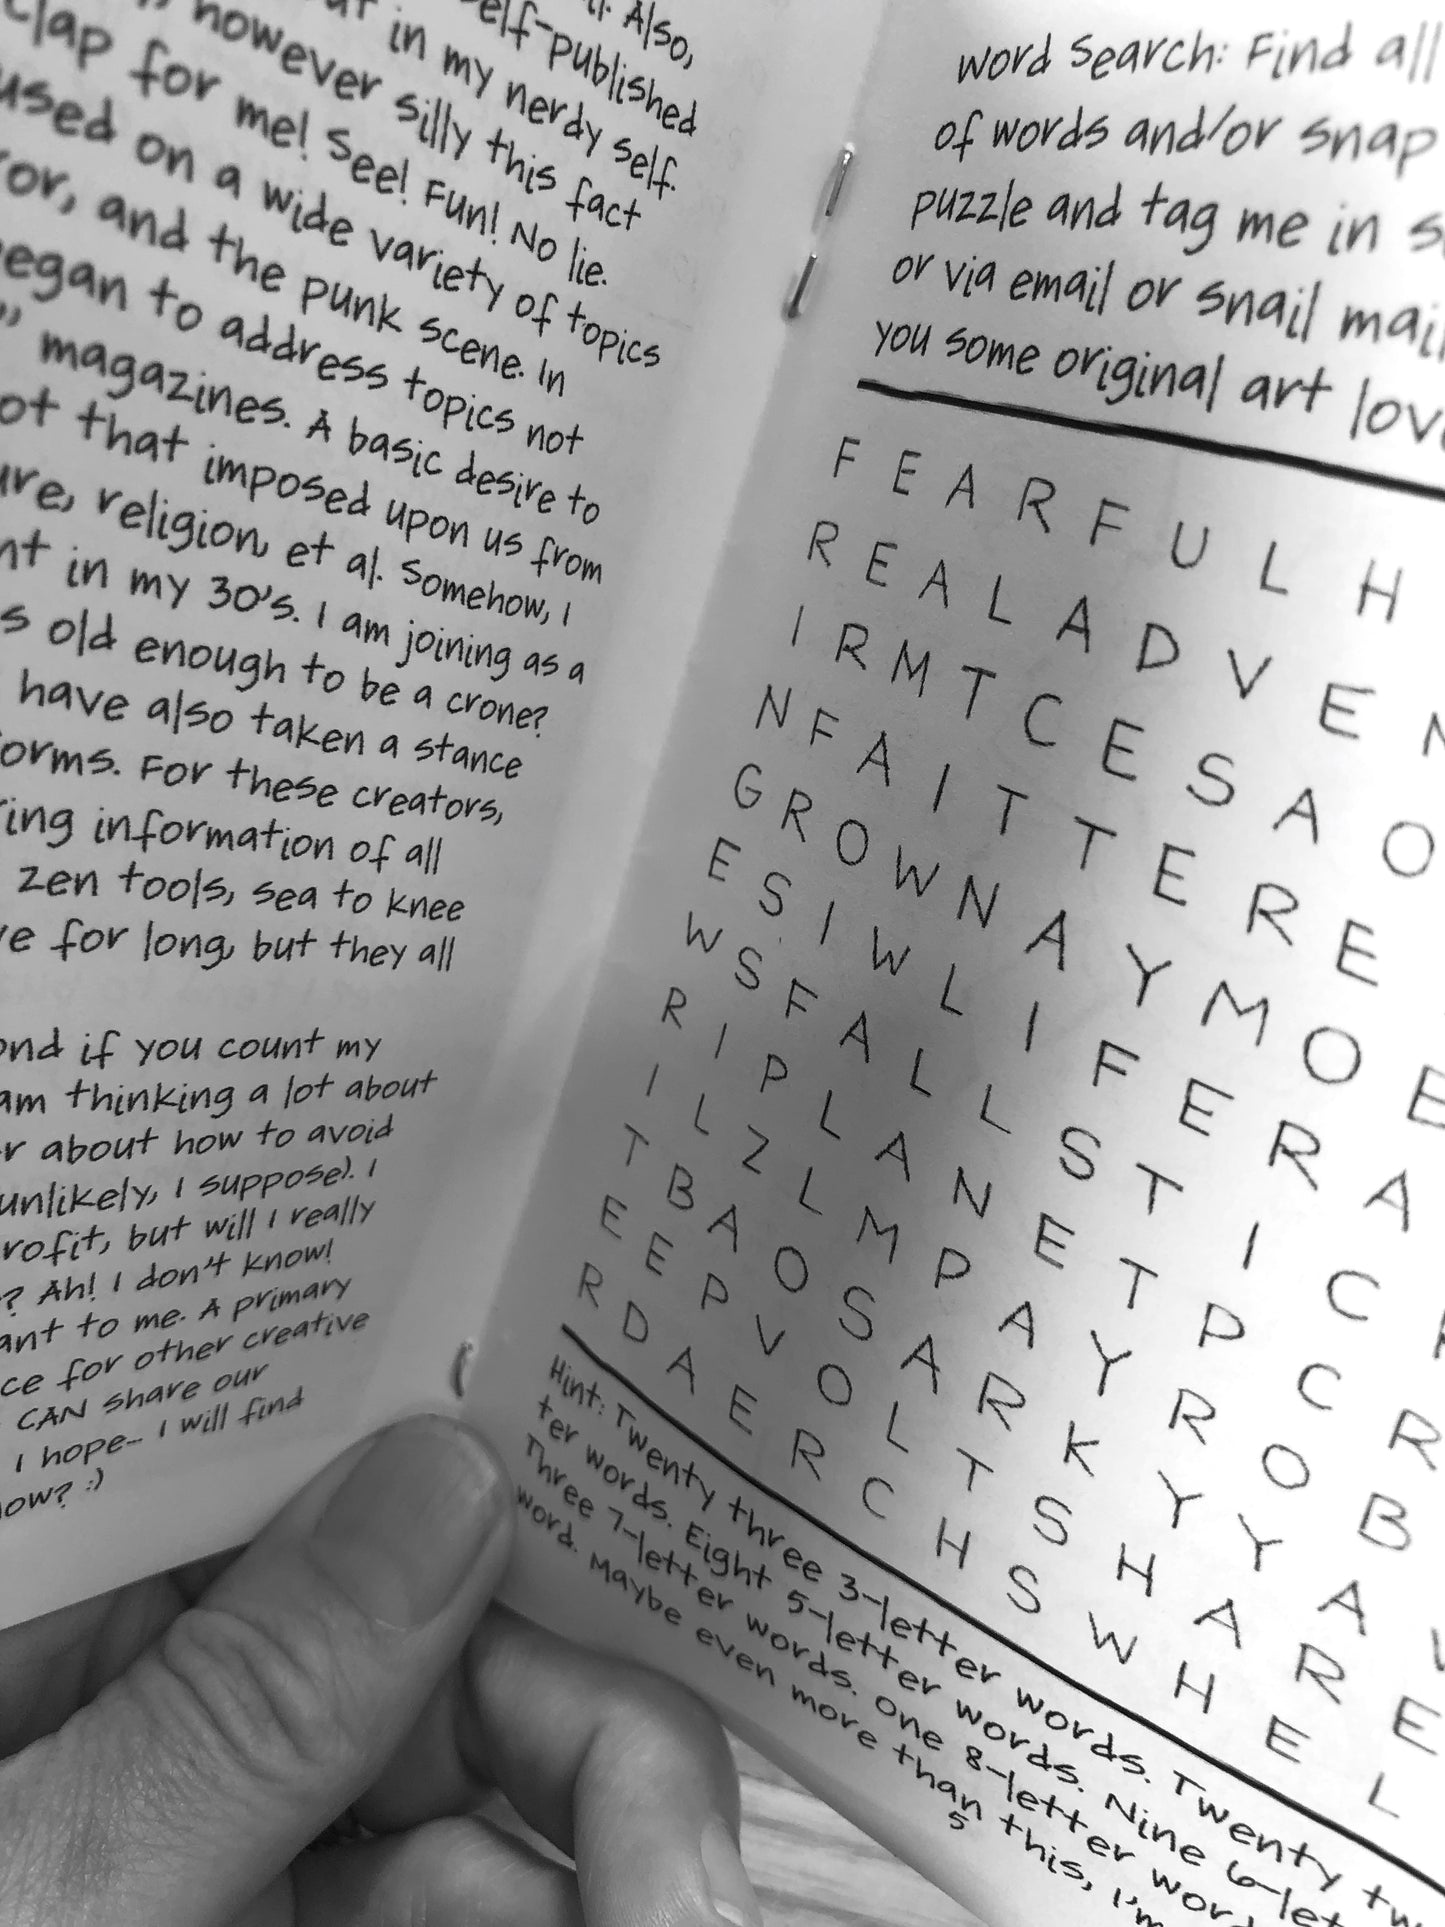 Also,
self-published
in my nerdy self.
however silly this fact
clap for me! See! Fun! No lie.
used on a wide variety of topics
and the punk scene. In
began to address topics not
magazines. A basic desire to
that imposed upon us from
religion, et al. Somehow, I
in my 30's. I am joining as a
old enough to be a crone?
have also taken a stance
For these creators,
information of all
zen tools, sea to knee
for long, but they all
if you count my
am thinking a lot about
about how to avoid
unlikely, I suppose). I
but will I really
? Ah! I don't know!
to me. A primary
for other creative
CAN share our
I hope-- I will find
:)
Word Search: Find all
of words and/or snap
puzzle and tag me in
or via email or snail
you some original art
F E A R F U L H
R E A L A D V E N
I R M T C E S A O
N F A I T T E R E
G R O W N A Y M O E
E S I W L I F E R A
W S F A L L S T I C
R I P L A N E T P C R
I L Z L M P A Y R O B
T B A O S A R K Y Y A
E E P V O L T S H A R E
R D A E R C H S W H E L
Hint: Twenty three 3-letter words. Twenty
ter words. Eight 5-letter words. Nine
Three 7-letter words. One 8-letter
word. Maybe even more than this, I'm
5